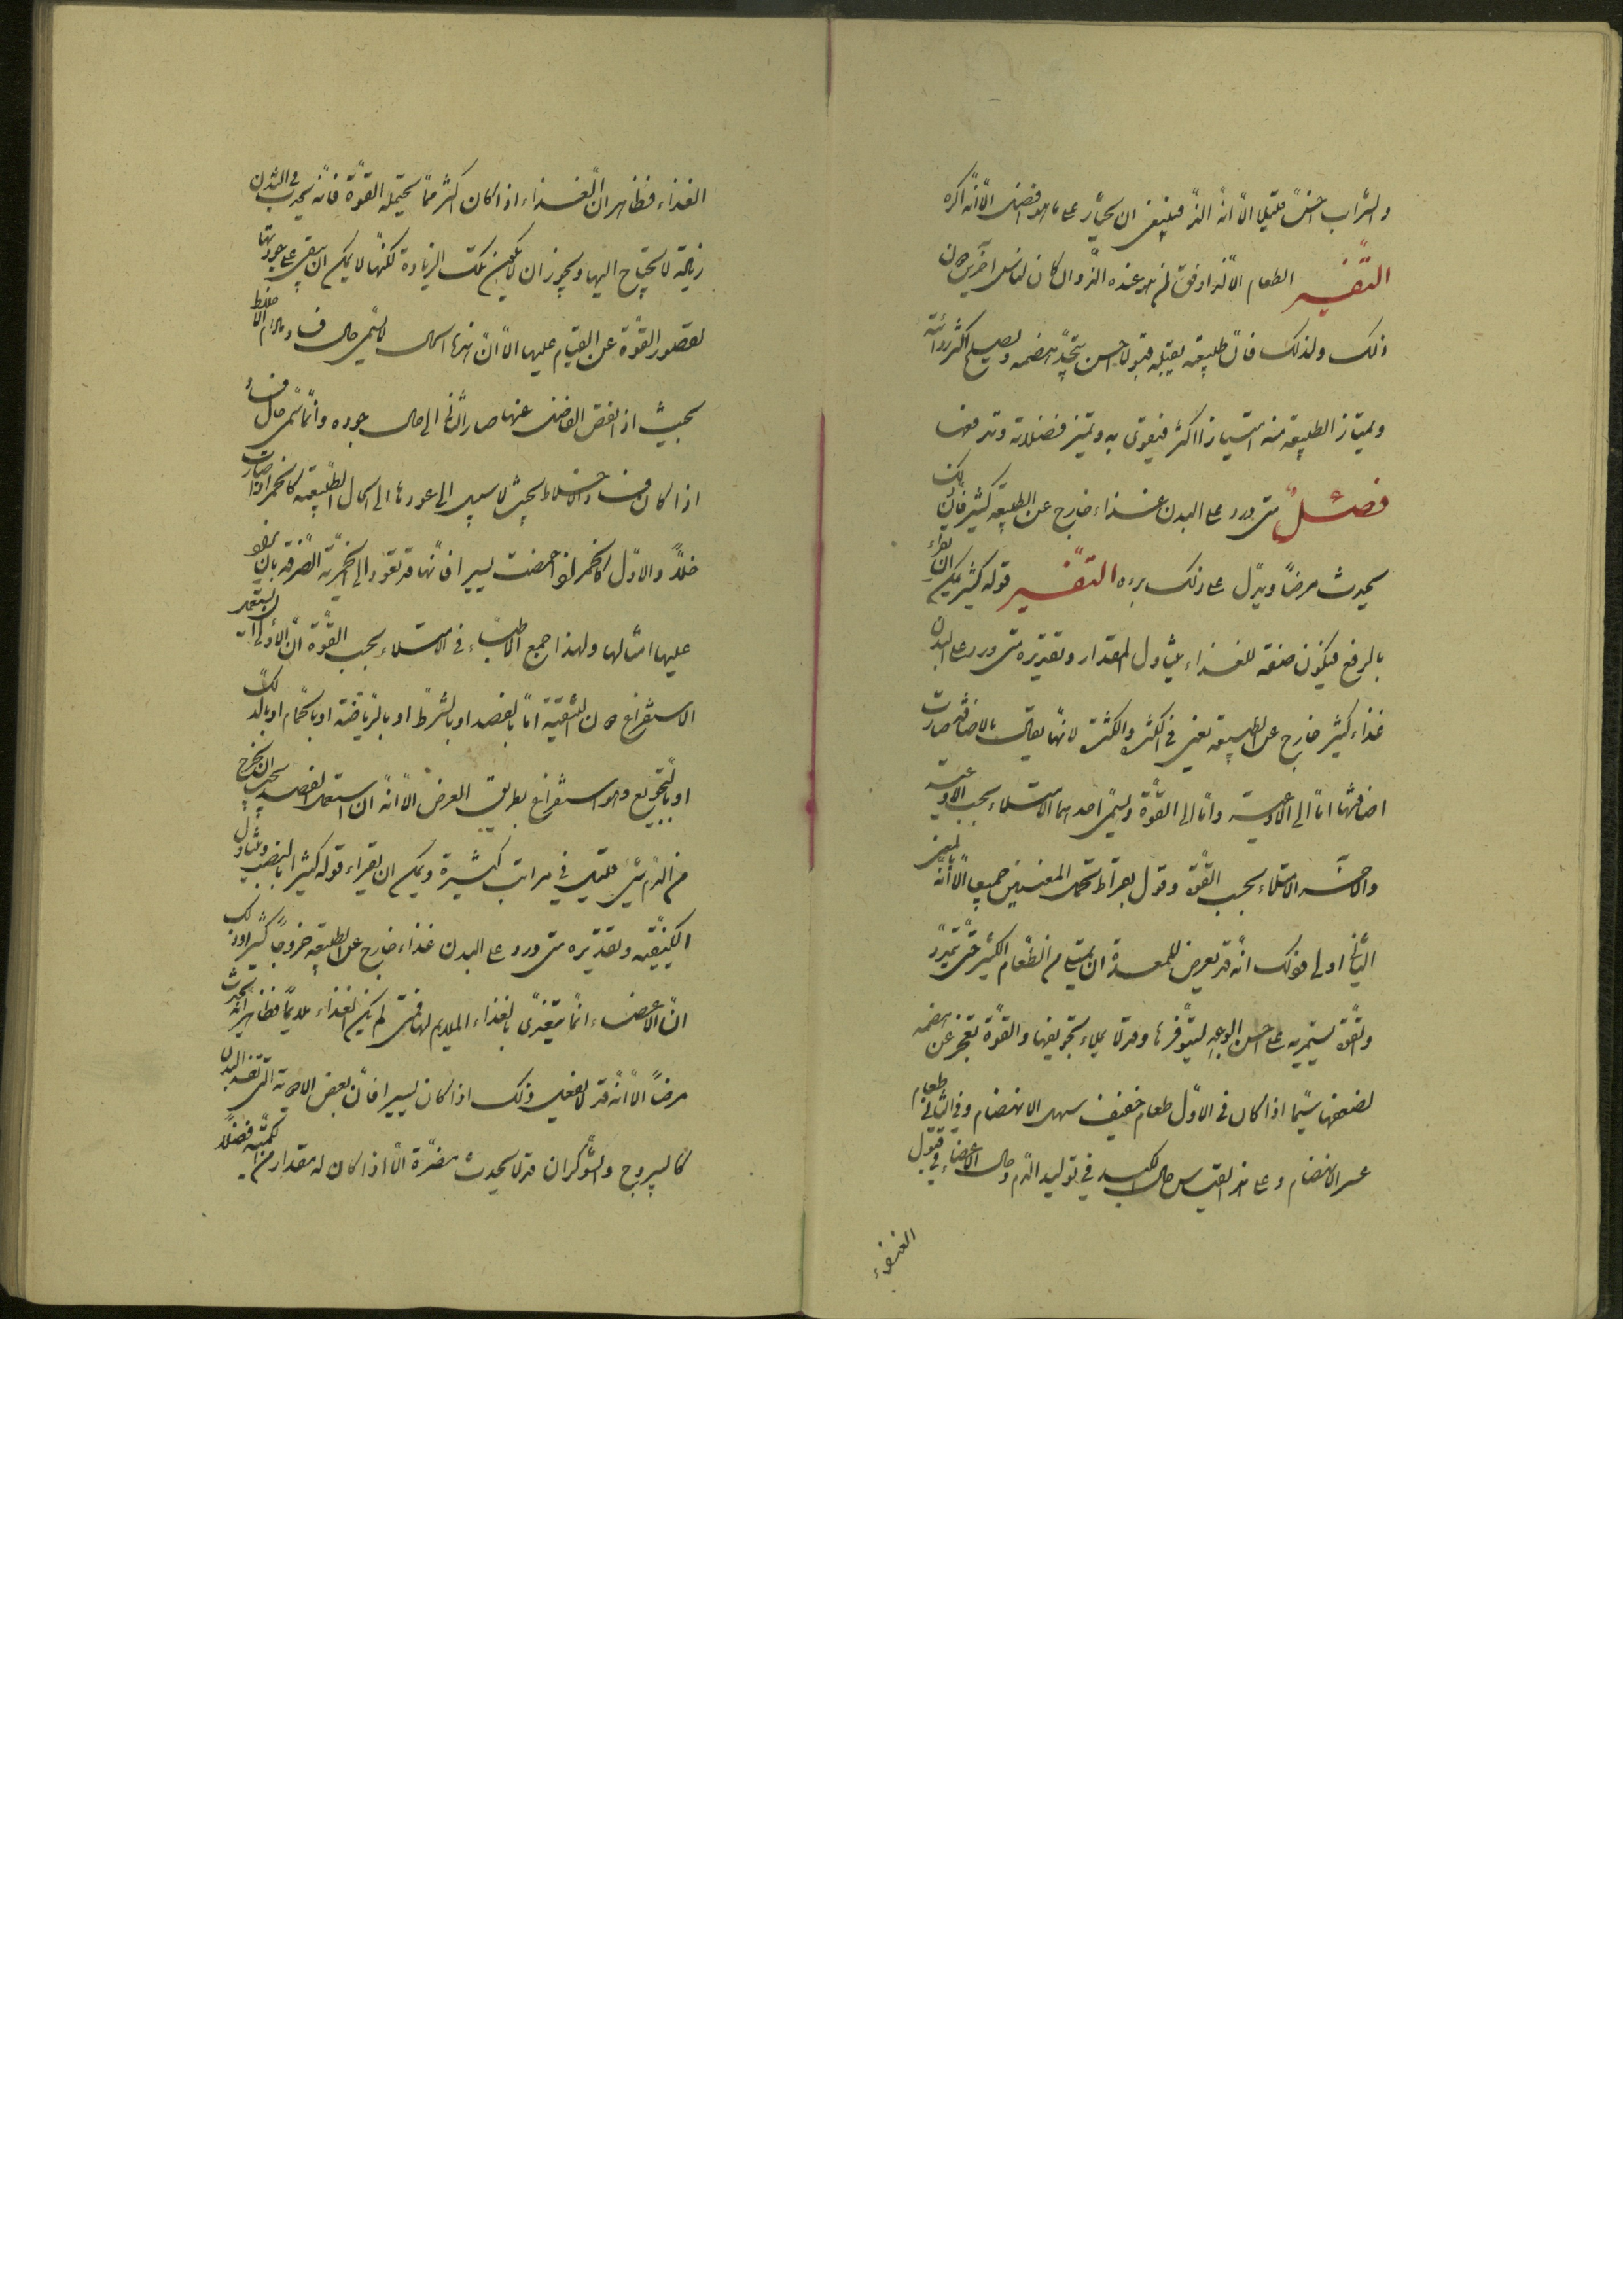 والشراب اخسّ قليلا الّا انّه الذّ فينبغى ان يختار على ما هو افضل الّا انّه اكره
التّفسير الطعام الالذ اوفق لمن هو عنده الذّ وان كان لناس آخرين دون
ذلك ولذلك فانّ طبيعته يقبله قبولا احسن يتجّد هضمه ويصلح اكثر رداءته
ويمتاز الطبيعة منه امتيازا اكثر فيقوى به وتميز فضلاته وتدفعها
فصل متى ورد على البدن غذاء خارج عن الطبيعة كثير فانّ ذلك
يحدث مرضا ويدلّ على ذلك برءه التّفسير قوله كثير يمكن ان يقراء
بالرفع فيكون صفة للغذاء يتناول المقدار وتقديره متى ورد على البدن
غذاء كثير خارج عن الطبيعة يعنى فى الكثرة والكثرة لانّها يقال بالاضافة صارت
اضافتها امّا الى الاوعية وامّا الى القوّة ويسمّى احدهما الامتلاء بحسب الاوعية
والاخر الامتلاء بحسب القوّة وقول بقراط يحتمل المعنيين جميعا الّا انّه بالمعنى
الثانى اولى وذلك انّه قد يعرض للمعدة ان يمتلى من الطعام الكثير حتى يتمدّد
والقوّة يستمريه على احسن الوجه لتوفّرها وقد لا يملاء تجويفها والقوّة تعجز عن هضمه
لضعفها سيّما اذا كان فى الاوّل طعام خفيف سهل الانهضام وفى الثانى طعام
عسر الانهضام وعلى هذا القياس حال الكبد فى توليد الدّم وحال الاعضاء فى قبول
الغذاء
الغذاء فظاهر انّ الغذاء اذا كان اكثر ممّا يحتمله القوّة فانّه يحدث فى البدن
زيادة لا يحتاج اليها ويجوز ان لا يكون تلك الزيادة لكنّها لا يمكن ان يبقى على جودتها
لقصور القوّة عن القيام عليها الّا انّ هذا الحال لا يسمّى حال فساد مادام الاخلاط
بحيث اذا نقص الفاضل عنها صار الباقى الى حال جوده وانّما يسمّى حال فساد
اذا كان فساد الاخلاط بحيث لا سبيل الى عودها الى الحال الطّبيعية كالخمر اذا صارت
خلّا والاوّل كالخمر اذا حمضت يسيرا فانّها قد تعود الى الخمريّة الصّرفة بان
عليها امثالها ولهذا اجمع الاطبّاء فى الامتلاء بحسب القوّة انّ الاولى ان يستعمل
الاستفراغ دون التنقية امّا بالفصد او بالشرط او بالرّياضة او بالحمّام او بالدّلك
او بالتجويع وهو استفراغ بطريق العرض الّا انّه ان استعمل الفصد يجب ان يخرج
من الدّم شئ قليل فى مرات كثيرة ويمكن ان يقراء قوله كثيرا بالنصب ويتناول
الكيفيّة وتقديره متى ورد على البدن غذاء خارج عن الطبيعة خروجا كثيرا وذلك
انّ الاعضاء انّما يتغذّى بالغذاء الملايم لها فمتى لم يكن الغذاء ملايما فظاهر انّه يحدث
مرضا الّا انّه قد لا يفعل ذلك اذا كان يسيرا فانّ بعض الادوية التى تفسد البدن
كاليبروج والشّوكران قد لا يحدث مضرّة الّا اذا كان له مقدار من كميّته فضلا